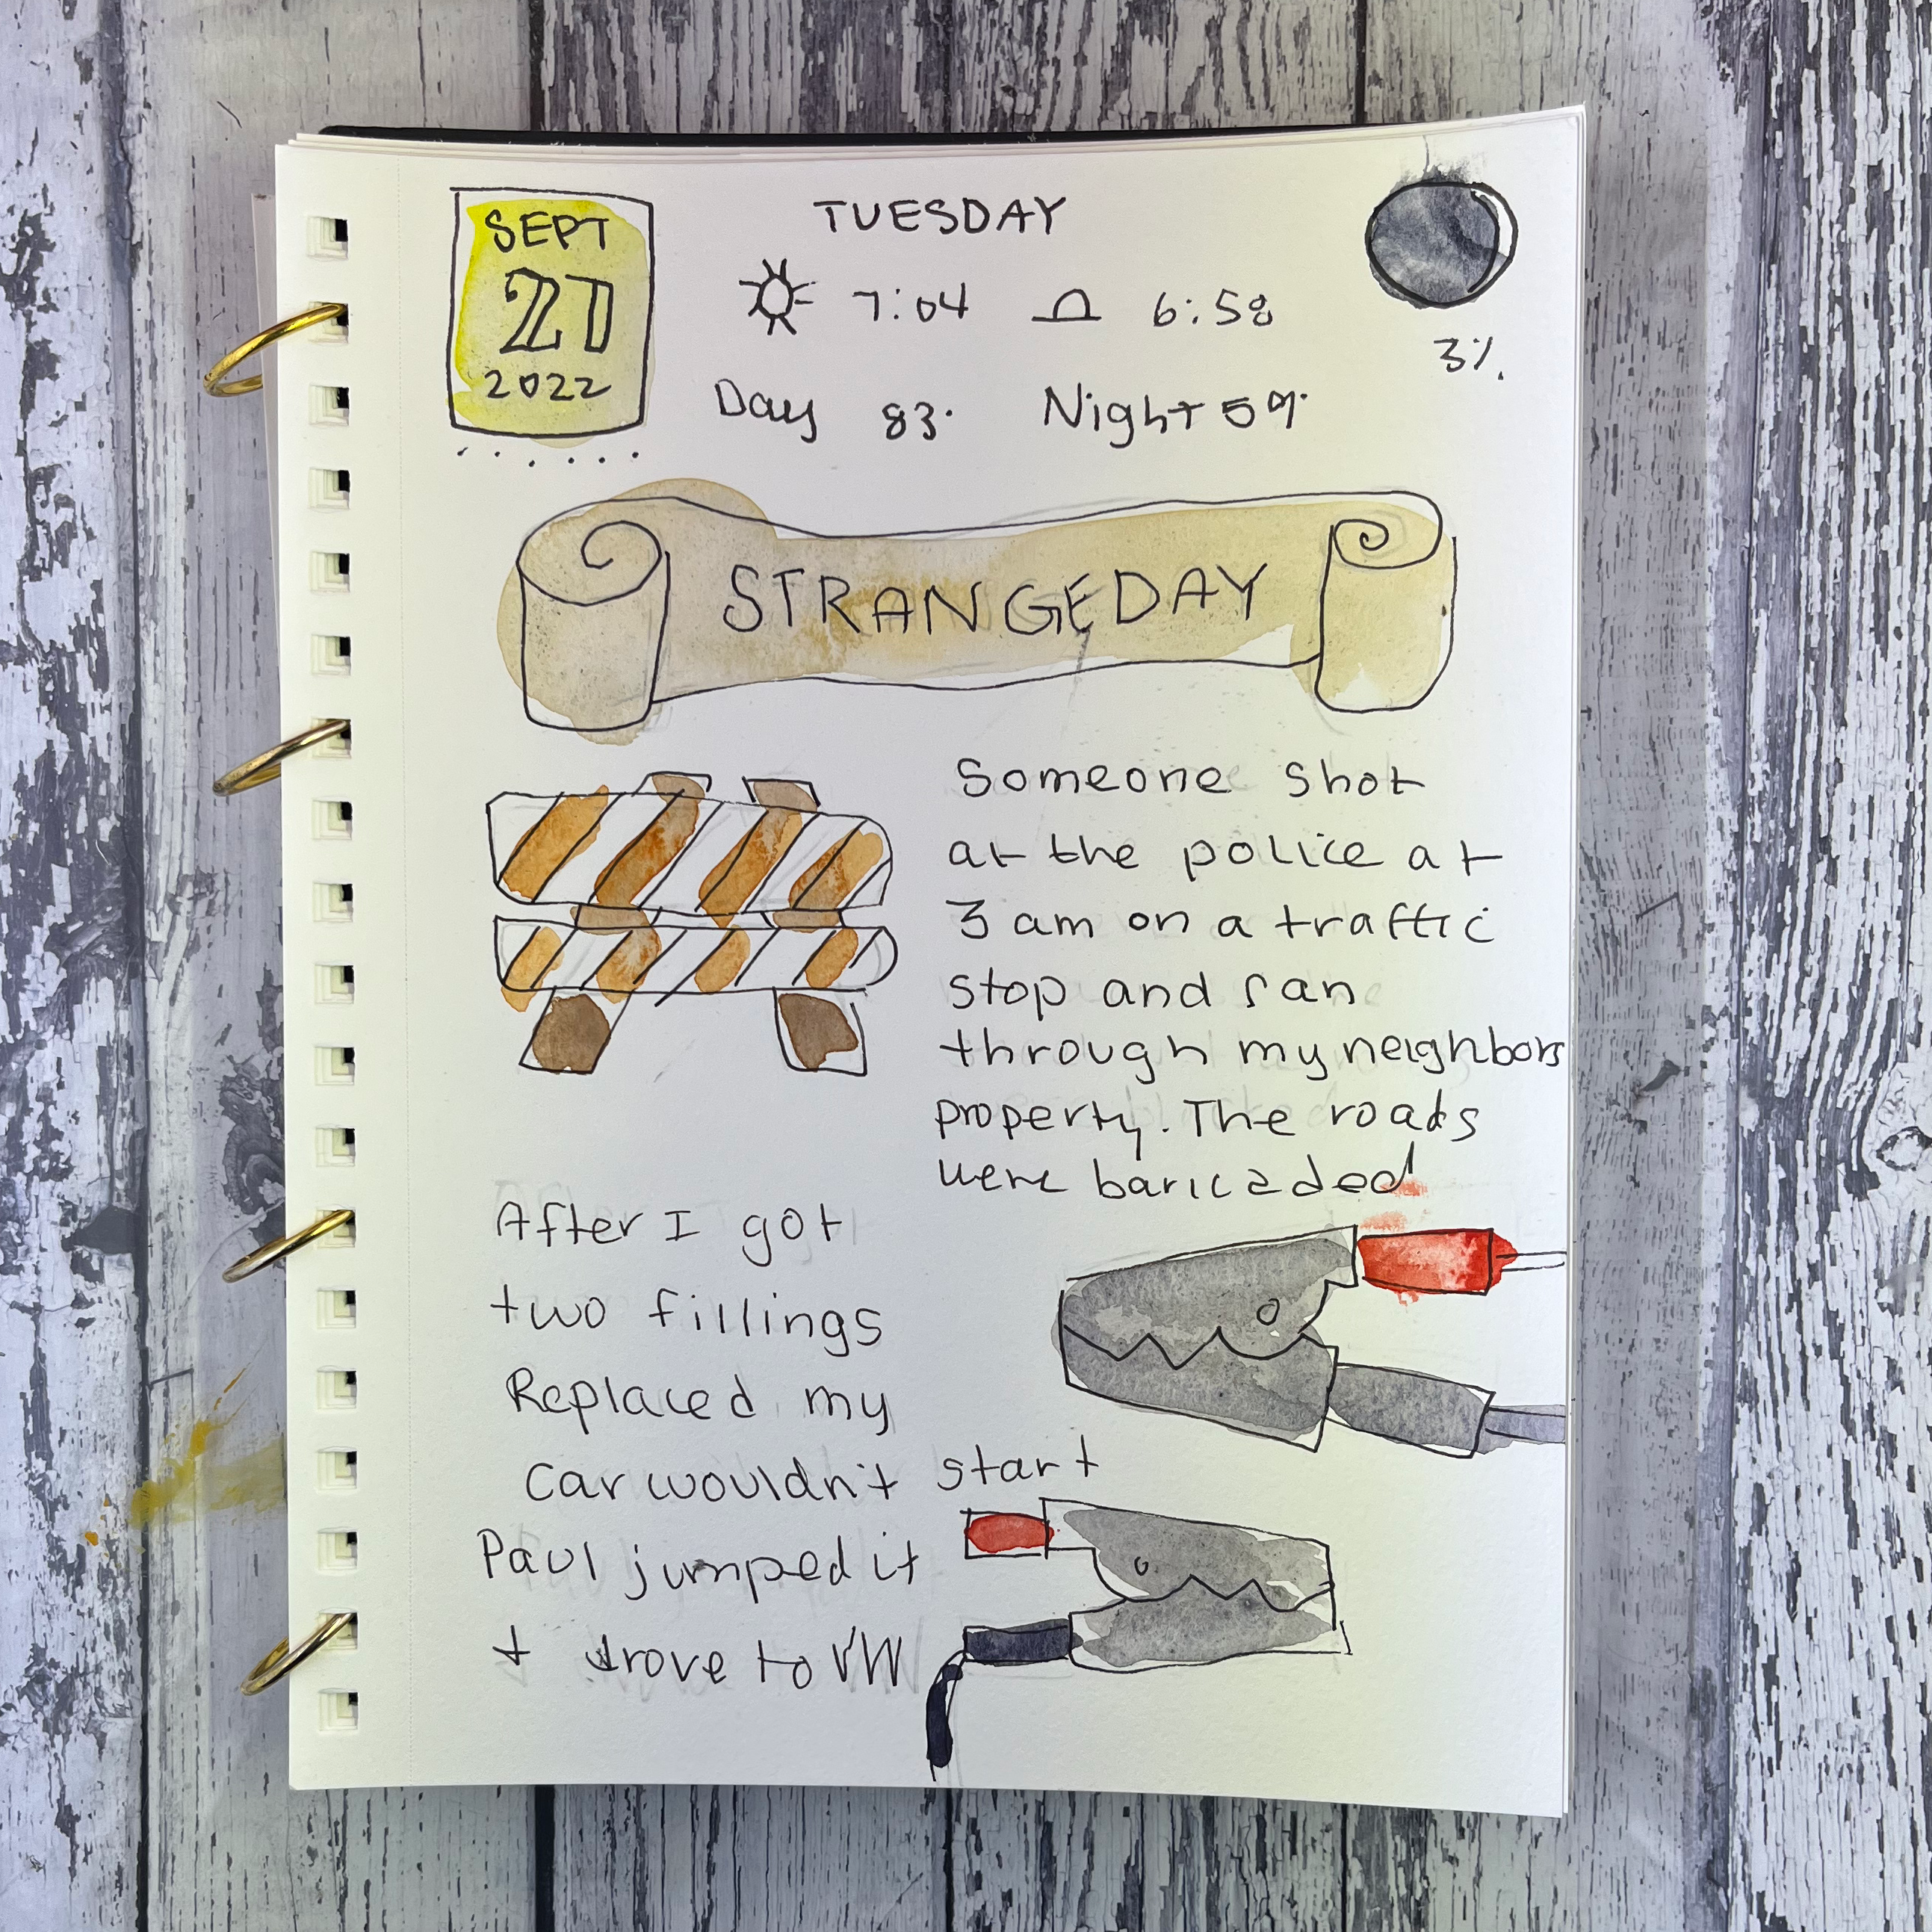 SEPT
27
2022
TUESDAY
7:04 6:58
Day 83° Night 59°
3%
STRANGE DAY
Someone shot
at the police at
3 am on a traffic
stop and ran
through my neighbors
property. The roads
were baricaded
After I got
two fillings
Replaced my
car wouldn't start
Paul jumped it
+ drove to VW